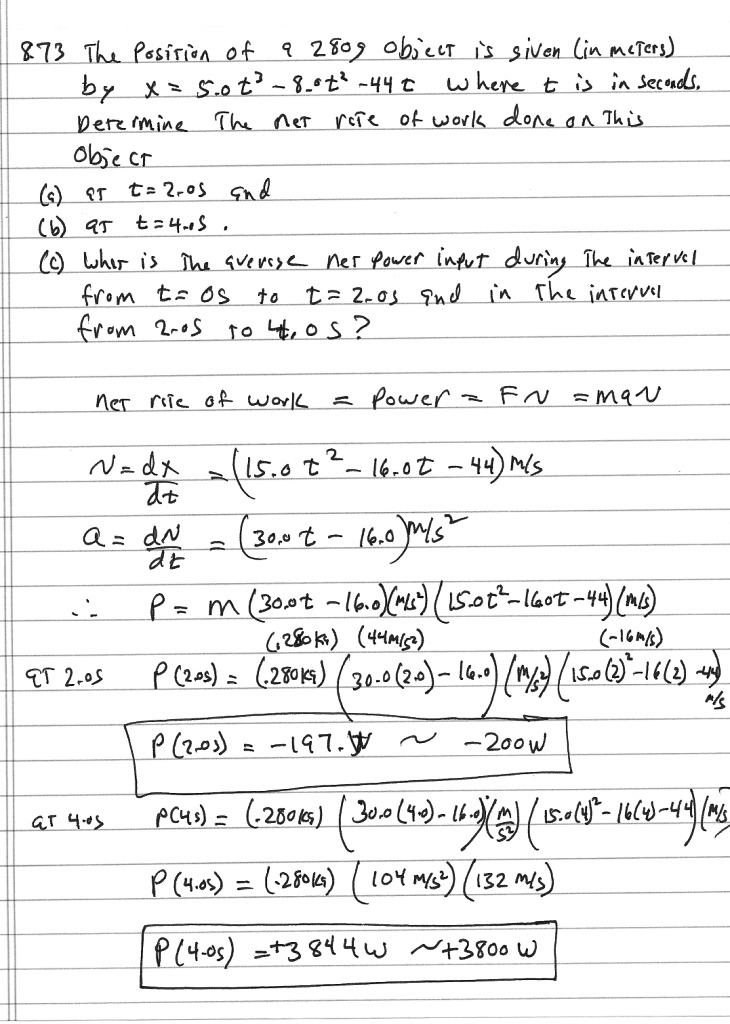 873 The Position of a 280g object is given (in meters)
by x = 5.0t³ - 8.0t² - 44t where t is in seconds.
Determine The net rate of work done on This
Object
(a) at t = 2.0s and
(b) at t = 4.0s .
(c) What is The average net power input during The interval
from t = 0s to t = 2.0s and in The interval
from 2.0s to 4.0s?
net rate of work = Power = Fv = mav
v = dx/dt = (15.0t² - 16.0t - 44) m/s
a = dv/dt = (30.0t - 16.0) m/s²
∴ P = m (30.0t - 16.0)(m/s²) (15.0t² - 16.0t - 44) (m/s)
(.280kg) (44m/s²) (-16m/s)
at 2.0s P(2.0s) = (.280kg) (30.0(2.0) - 16.0) (m/s²) (15.0(2)² - 16(2) - 44) m/s
P(2.0s) = -197. W ~ -200W
at 4.0s P(4s) = (.280kg) (30.0(4.0) - 16.0) (m/s²) (15.0(4)² - 16(4) - 44) (m/s
P(4.0s) = (.280kg) (104 m/s²) (132 m/s)
P(4.0s) = +3844W ~ +3800W